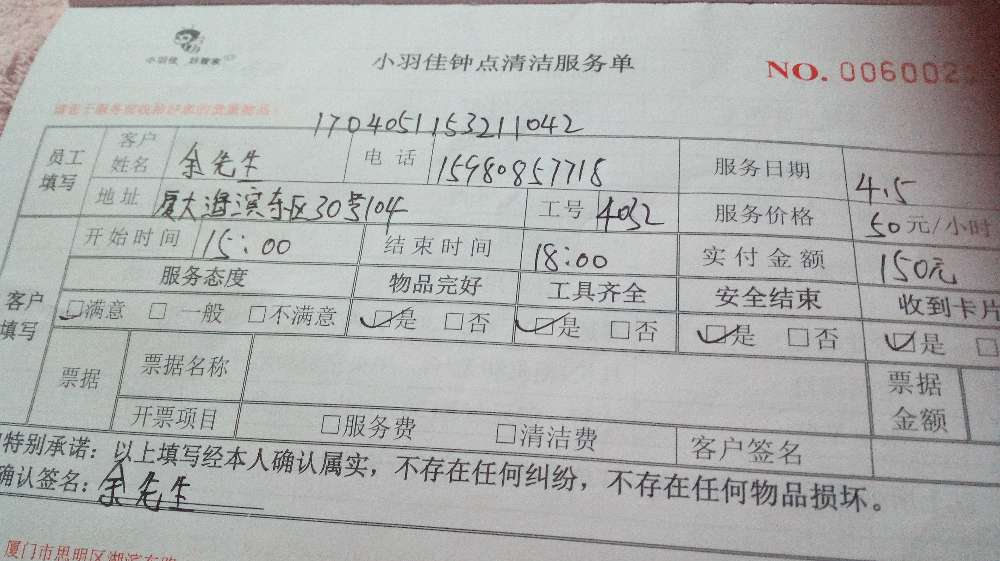 小羽佳 好管家
小羽佳钟点清洁服务单
NO. 006002
170405115321​1042
员工填写 客户姓名 余先生 电话 15980857718 服务日期 4.5
地址 厦大海滨东区30号104 工号 4032 服务价格 50元/小时
开始时间 15:00 结束时间 18:00 实付金额 150元
客户填写 服务态度 物品完好 工具齐全 安全结束 收到卡片
☑满意 □一般 □不满意 ☑是 □否 ☑是 □否 ☑是 □否 ☑是 □
票据 票据名称 票据金额
开票项目 □服务费 □清洁费 客户签名
特别承诺：以上填写经本人确认属实，不存在任何纠纷，不存在任何物品损坏。
确认签名：余先生
厦门市思明区湖滨